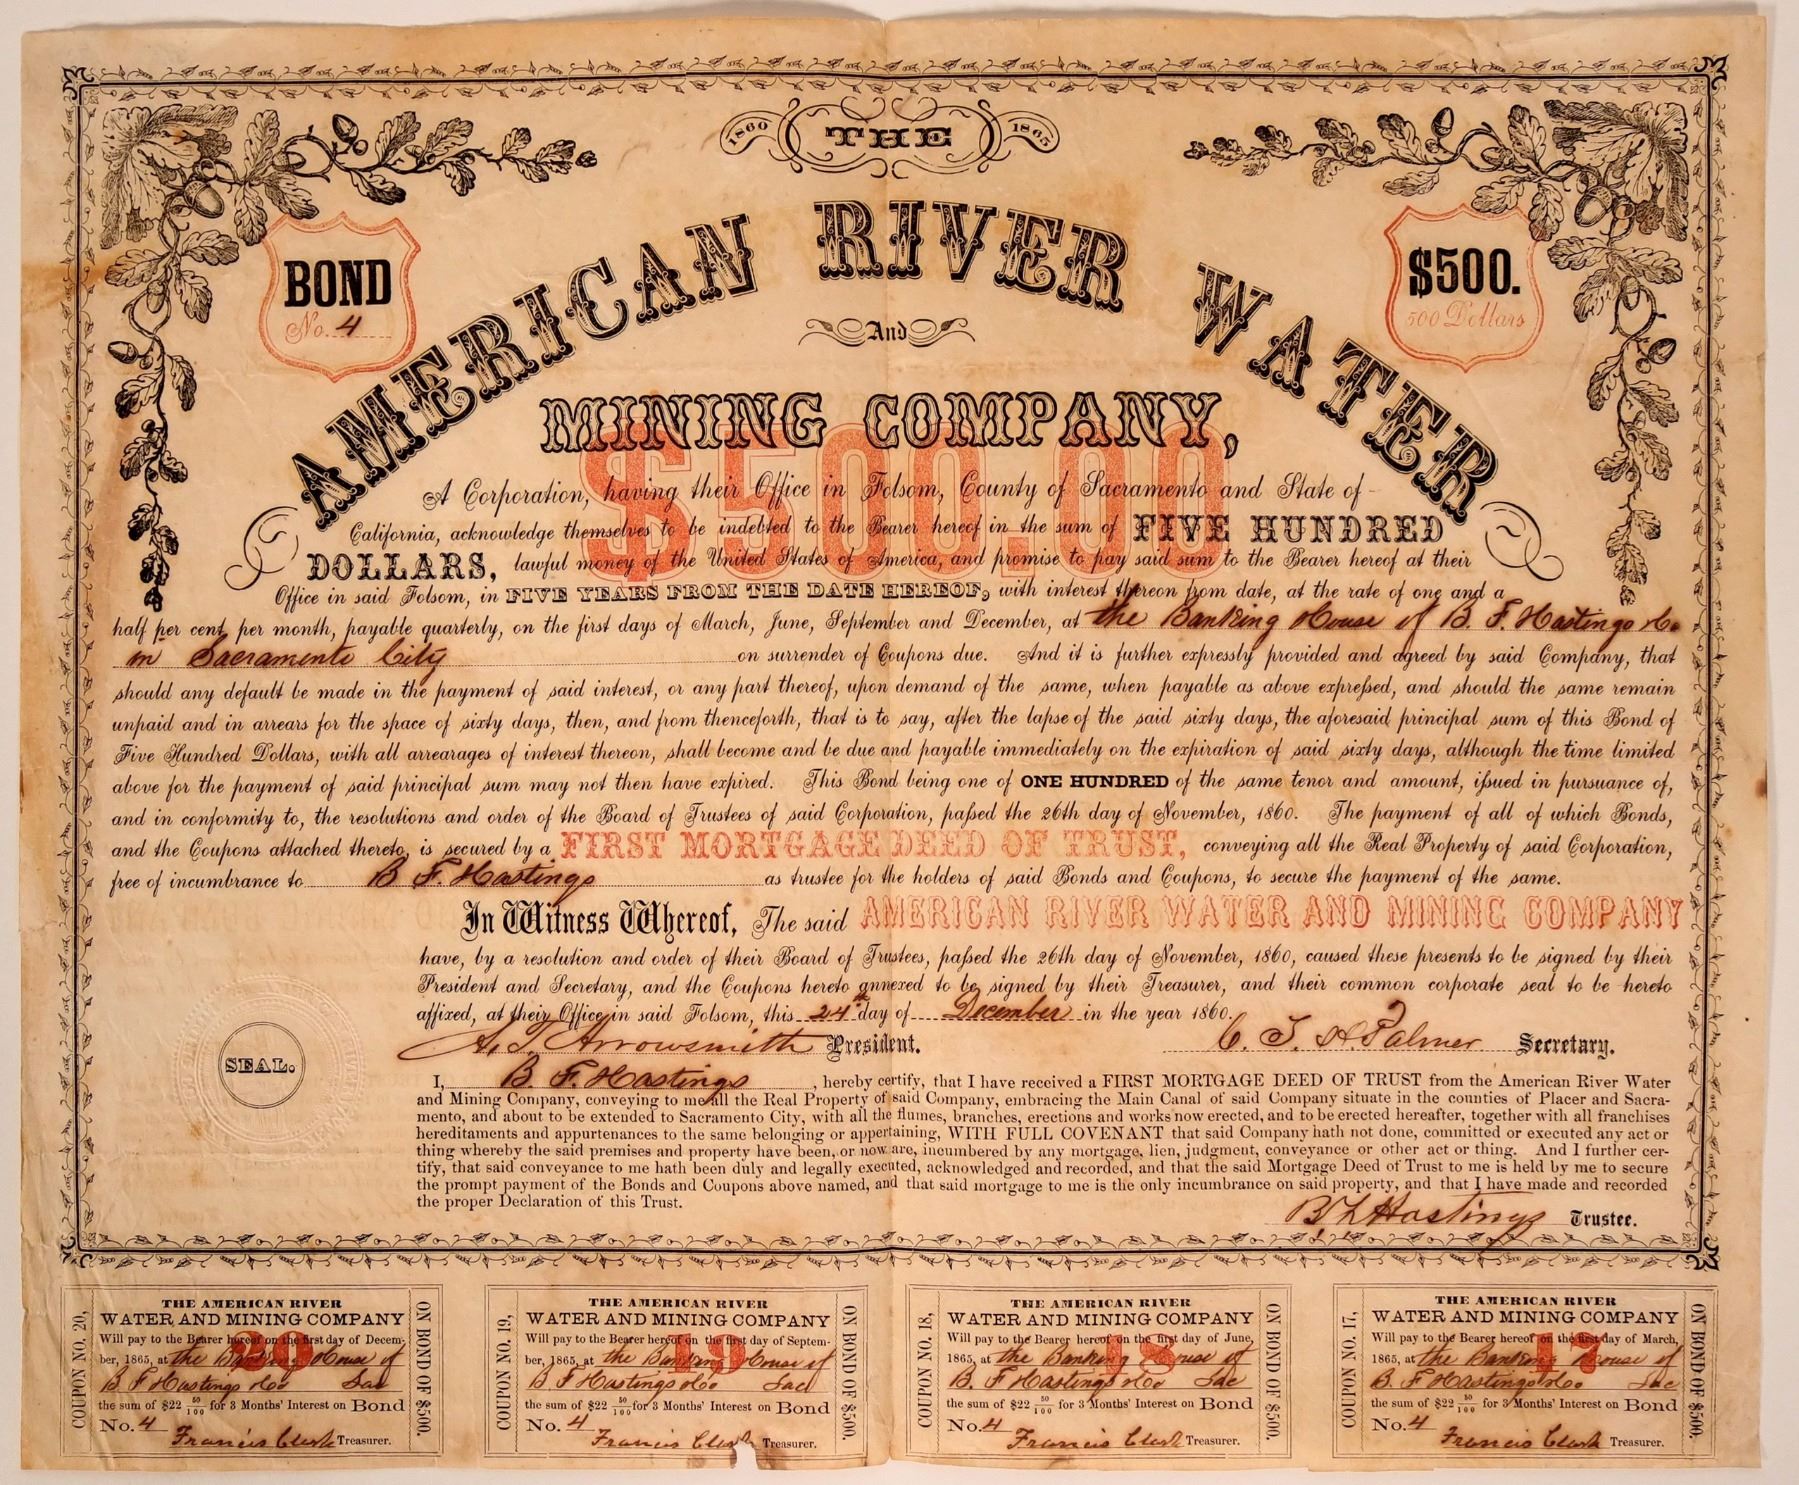 1860 THE 1865
BOND
No. 4
$500.
500 Dollars
AMERICAN RIVER WATER
And
MINING COMPANY,
$500,00
A Corporation, having their Office in Folsom, County of Sacramento and State of
California, acknowledge themselves to be indebted to the Bearer hereof in the sum of FIVE HUNDRED
DOLLARS, lawful money of the United States of America, and promise to pay said sum to the Bearer hereof at their
Office in said Folsom, in FIVE YEARS FROM THE DATE HEREOF, with interest thereon from date, at the rate of one and a
half per cent. per month, payable quarterly, on the first days of March, June, September and December, at the Banking House of B. F. Hastings & Co
in Sacramento City on surrender of Coupons due. And it is further expressly provided and agreed by said Company, that
should any default be made in the payment of said interest, or any part thereof, upon demand of the same, when payable as above expressed, and should the same remain
unpaid and in arrears for the space of sixty days, then, and from thenceforth, that is to say, after the lapse of the said sixty days, the aforesaid principal sum of this Bond of
Five Hundred Dollars, with all arrearages of interest thereon, shall become and be due and payable immediately on the expiration of said sixty days, although the time limited
above for the payment of said principal sum may not then have expired. This Bond being one of ONE HUNDRED of the same tenor and amount, issued in pursuance of,
and in conformity to, the resolutions and order of the Board of Trustees of said Corporation, passed the 26th day of November, 1860. The payment of all of which Bonds,
and the Coupons attached thereto, is secured by a FIRST MORTGAGE DEED OF TRUST, conveying all the Real Property of said Corporation,
free of incumbrance to B F. Hastings as trustee for the holders of said Bonds and Coupons, to secure the payment of the same.
In Witness Whereof, The said AMERICAN RIVER WATER AND MINING COMPANY
have, by a resolution and order of their Board of Trustees, passed the 26th day of November, 1860, caused these presents to be signed by their
President and Secretary, and the Coupons hereto annexed to be signed by their Treasurer, and their common corporate seal to be hereto
affixed, at their Office in said Folsom, this 24th day of December in the year 1860.
A. T. Arrowsmith President. C. T. H. Palmer Secretary.
SEAL.
I, B. F. Hastings, hereby certify, that I have received a FIRST MORTGAGE DEED OF TRUST from the American River Water
and Mining Company, conveying to me all the Real Property of said Company, embracing the Main Canal of said Company situate in the counties of Placer and Sacra-
mento, and about to be extended to Sacramento City, with all the flumes, branches, erections and works now erected, and to be erected hereafter, together with all franchises
hereditaments and appurtenances to the same belonging or appertaining, WITH FULL COVENANT that said Company hath not done, committed or executed any act or
thing whereby the said premises and property have been, or now are, incumbered by any mortgage, lien, judgment, conveyance or other act or thing. And I further cer-
tify, that said conveyance to me hath been duly and legally executed, acknowledged and recorded, and that the said Mortgage Deed of Trust to me is held by me to secure
the prompt payment of the Bonds and Coupons above named, and that said mortgage to me is the only incumbrance on said property, and that I have made and recorded
the proper Declaration of this Trust.
B F Hastings Trustee.
COUPON NO. 20,
THE AMERICAN RIVER
WATER AND MINING COMPANY
Will pay to the Bearer hereof on the first day of Decem-
ber, 1865, at the Banking House of
B F Hastings & Co Sac
the sum of $22 50/100 for 3 Months' Interest on Bond
No. 4 Francis Clark Treasurer.
20
ON BOND OF $500.
COUPON NO. 19,
THE AMERICAN RIVER
WATER AND MINING COMPANY
Will pay to the Bearer hereof on the first day of Septem-
ber, 1865, at the Banking House of
B F Hastings & Co Sac
the sum of $22 50/100 for 3 Months' Interest on Bond
No. 4 Francis Clark Treasurer.
19
ON BOND OF $500.
COUPON NO. 18,
THE AMERICAN RIVER
WATER AND MINING COMPANY
Will pay to the Bearer hereof on the first day of June,
1865, at the Banking House of
B. F Hastings & Co Sac
the sum of $22 50/100 for 3 Months' Interest on Bond
No. 4 Francis Clark Treasurer.
18
ON BOND OF $500.
COUPON NO. 17,
THE AMERICAN RIVER
WATER AND MINING COMPANY
Will pay to the Bearer hereof on the first day of March,
1865, at the Banking House of
B. F Hastings & Co Sac
the sum of $22 50/100 for 3 Months' Interest on Bond
No. 4 Francis Clark Treasurer.
17
ON BOND OF $500.